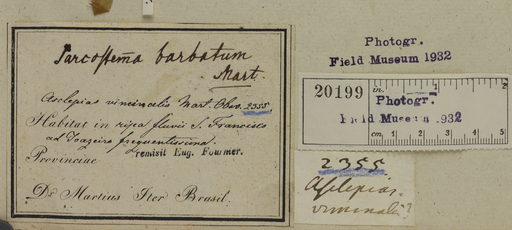 Sarcostema barbatum
Mart.
Asclepias vincinalis Mart. Obs. 2355.
Habitat in ripa fluvii S. Francisco
ad Joazeiro frequentissima.
remisit Eug. Fournier.
Provinciae
Dr Martius Iter Brasil.
Photogr.
Field Museum 1932
20199
in. 1 2
Photogr.
Field Museum 1932
cm. 1 2 3 4 5
2355
Asclepias
viminalis?